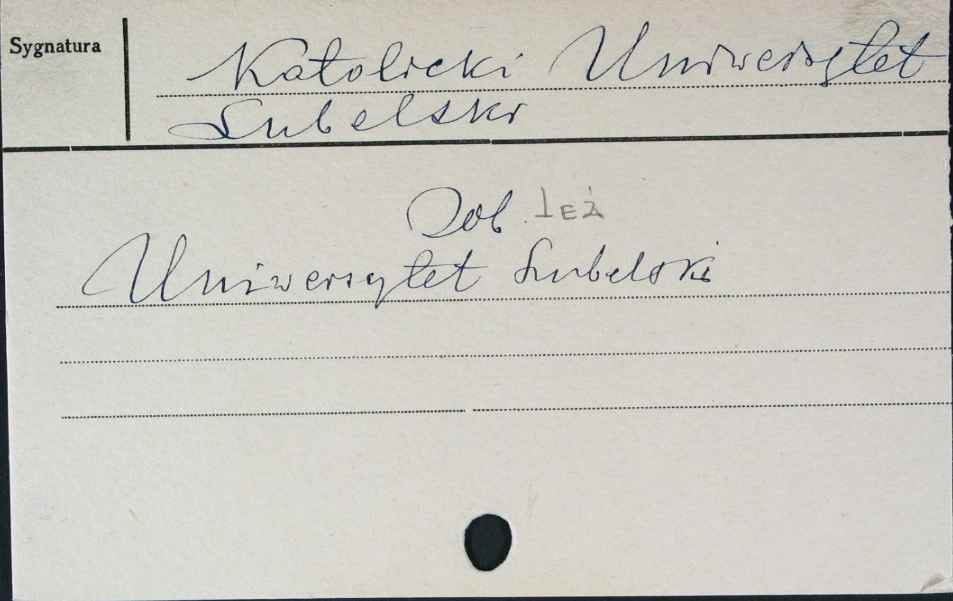 Sygnatura
Katolicki Uniwersytet
Lubelski
Zob. też
Uniwersytet Lubelski